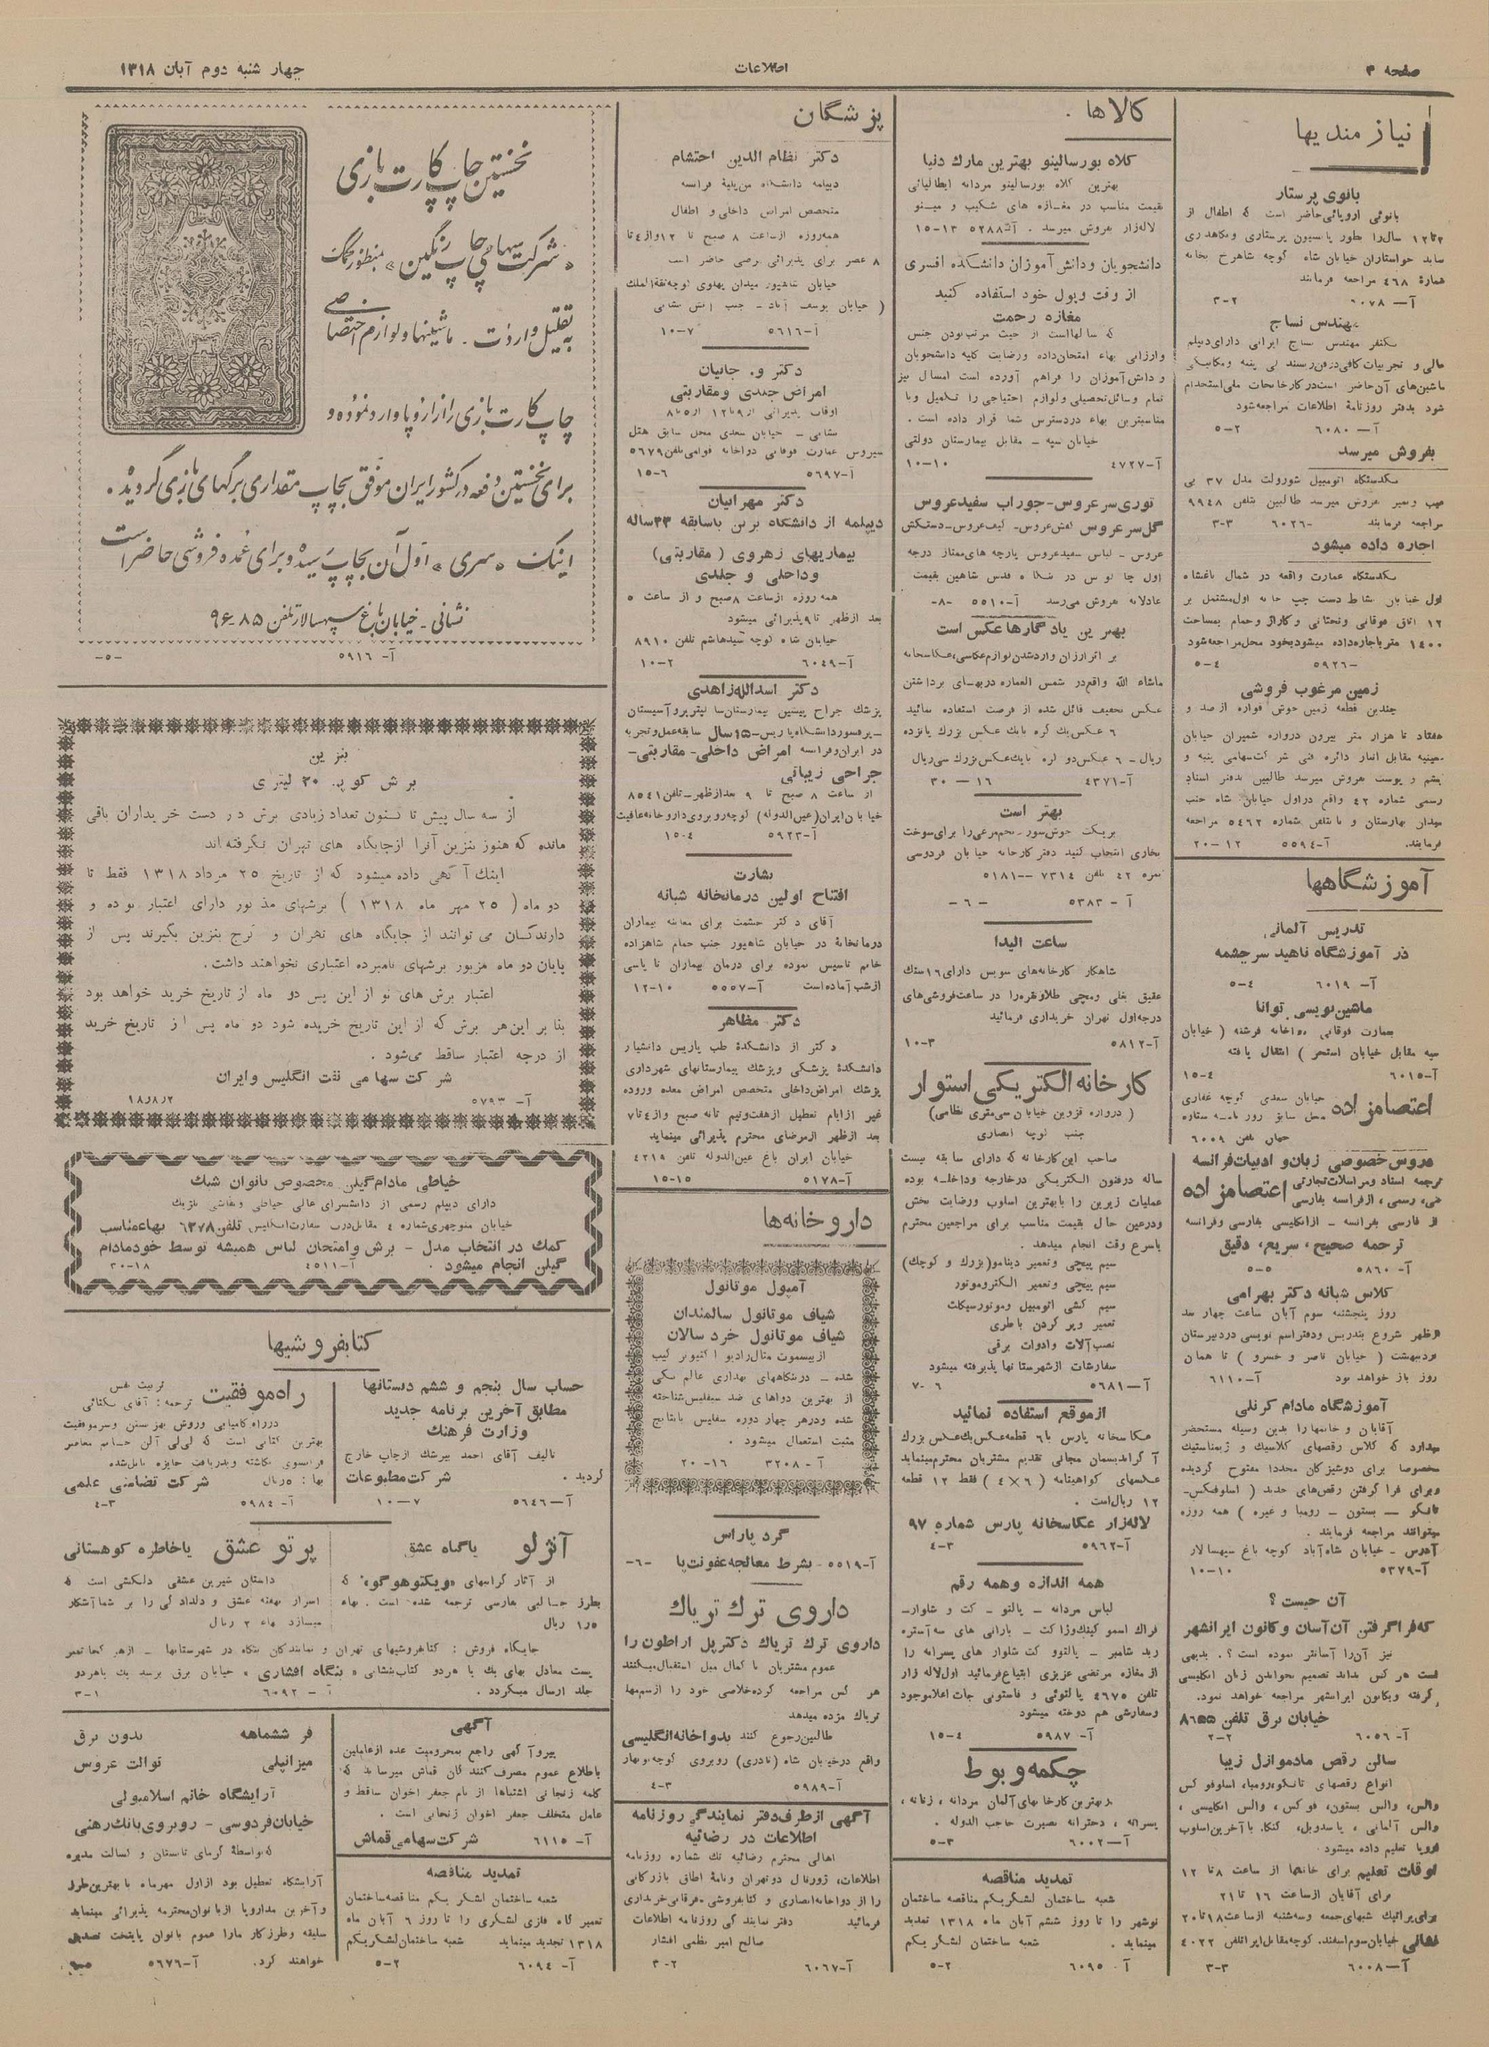 صفحه ۴
اطلاعات
چهار شنبه دوم آبان ۱۳۱۸
نیاز مندیها
بانوی پرستار
بانوئی اروپائی حاضر است که اطفال از
۲ تا ۱۲ سال را بطور پانسیون پرستاری و نگاهداری
نماید خواستاران خیابان شاه کوچه شاهرخ بخانه
شمارهٔ ۴۶۸ مراجعه فرمایند
آ— ۶۰۷۸ ۲-۳
مهندس نساج
یکنفر مهندس نساج ایرانی دارای دیپلم
عالی و تجربیات کافی در فن ریسندگی پنبه و مکانیکی
ماشین‌های آن حاضر است در کارخانجات ملی استخدام
شود بدفتر روزنامهٔ اطلاعات مراجعه شود
آ— ۶۰۸۰ ۲-۵
بفروش میرسد
یکدستگاه اتومبیل شورولت مدل ۳۷ بی
عیب و تمیز بفروش میرسد طالبین بتلفن ۹۹۴۸
مراجعه فرمایند -۶۰۲۶ ۳-۳
اجاره داده میشود
یکدستگاه عمارت واقعه در شمال باغشاه
اول خیابان نشاط دست چپ خانه اول مشتمل بر
۱۲ اتاق فوقانی و تحتانی و گاراژ و حمام بمساحت
۱۴۰۰ متر باجاره داده میشود بخود محل مراجعه شود
-۵۹۲۶ ۴-۵
زمین مرغوب فروشی
چندین قطعه زمین خوش قواره از صد و
هفتاد تا هزار متر بیرون دروازه شمیران خیابان
مقابل انبار دائره فنی شرکت سهامی پنبه و
پشم و پوست بفروش میرسد طالبین بدفتر اسناد
رسمی شماره ۴۲ واقع در اول خیابان شاه جنب
میدان بهارستان و یا بتلفن شماره ۵۴۶۲ مراجعه
فرمایند. آ-۵۵۹۴ ۱۲-۲۰
آموزشگاهها
تدریس آلمانی
در آموزشگاه ناهید سرچشمه
آ- ۶۰۱۹ ۴-۵
ماشین نویسی توانا
بعمارت فوقانی دواخانه فرشته ( خیابان
سپه مقابل خیابان استخر ) انتقال یافته
آ-۶۰۱۵ ۴-۱۵
اعتصامزاده
خیابان سعدی کوچه غفاری
محل سابق روزنامه ستاره
جهان تلفن ۶۰۰۹
دروس خصوصی زبان و ادبیات فرانسه
ترجمه اسناد و مراسلات تجارتی
رسمی، از فرانسه بفارسی
اعتصامزاده
از فارسی بفرانسه - از انگلیسی بفارسی و فرانسه
ترجمه صحیح، سریع، دقیق
آ- ۵۸۶۰ ۵-۵
کلاس شبانه دکتر بهرامی
روز پنجشنبه سوم آبان ساعت چهار بعد
از ظهر شروع بتدریس و دفتر اسم نویسی در دبیرستان
( خیابان ناصر و خسرو ) تا همان
روز باز خواهد بود آ-۶۱۱۰
آموزشگاه مادام کرنلی
آقایان و خانمها را بدین وسیله مستحضر
میدارد که کلاس رقصهای کلاسیک و ژیمناستیک
مخصوصا برای دوشیزگان مجددا مفتوح گردیده
و برای فرا گرفتن رقص‌های جدید ( اسلوفکس-
تانگو — بستون - رومبا و غیره ) همه روزه
میتوانند مراجعه فرمایند .
آدرس - خیابان شاه آباد کوچه باغ سپهسالار
آ-۵۳۷۹ ۱۰-۱۰
آن چیست ؟
که فرا گرفتن آن آسان و کانون ایرانشهر
نیز آن را آسانتر نموده است ؟. بدیهی
است هر کس بداند تصمیم بخواندن زبان انگلیسی
گرفته و بکانون ایرانشهر مراجعه خواهد نمود.
خیابان برق تلفن ۸۶۵۵
آ- ۶۰۵۶ ۲-۲
سالن رقص مادموازل زیبا
انواع رقصهای تانگو، رومبا، اسلوفو کس
والس، والس بستون، فوکس، والس انگلیسی ،
والس آلمانی ، پاسدوبل، کنگا. با آخرین اسلوب
اروپا تعلیم داده میشود.
اوقات تعلیم برای خانمها از ساعت ۸ تا ۱۲
برای آقایان از ساعت ۱۶ تا ۲۱
برای پراتیک شبهای جمعه و سه شنبه از ساعت ۱۸ تا ۲۰
نشانی خیابان سوم اسفند. کوچه مقابل اپرا تلفن ۴۰۲۲
آ— ۶۰۰۸ ۳-۳
کالاها .
کلاه بورسالینو بهترین مارک دنیا
بهترین کلاه بورسالینو مردانه ایطالیائی
بقیمت مناسب در مغازه های شکیب و مینو
لاله زار بفروش میرسد . آ-۵۲۸۸ ۱۳-۱۵
دانشجویان و دانش آموزان دانشکده افسری
از وقت و پول خود استفاده کنید
مغازه رحمت
که سالها است از حیث مرتب بودن جنس
وارزانی بهاء امتحان داده و رضایت کلیه دانشجویان
و دانش آموزان را فراهم آورده است امسال نیز
تمام وسائل تحصیلی و لوازم احتیاجی را تکمیل و با
مناسبترین بهاء در دسترس شما قرار داده است .
خیابان سپه - مقابل بیمارستان دولتی
آ-۴۷۲۷ ۱۰-۱۰
توری سر عروس-جوراب سفید عروس
گل سر عروس کفش عروس- کیف عروس-دستکش
عروس - لباس سفید عروس پارچه های ممتاز درجه
اول چانوس در بنگاه قدس شاهین بقیمت
عادلانه بفروش می‌رسد آ-۵۵۱۰ -۸-
بهترین یادگارها عکس است
بر اثر ارزان وارد شدن لوازم عکاسی، عکاسخانه
ماشاء الله واقع در شمس العماره در بهای برداشتن
عکس تخفیف قائل شده از فرصت استفاده نمائید
۶ عکس یک کره با یک عکس بزرگ پانزده
ریال- ۶ عکس دو کره با یک عکس بزرگ سی ریال
آ-۴۳۷۱ ۱۶ — ۳۰
بهتر است
بریکت خوش سوز تخم مرغی را برای سوخت
بخاری انتخاب کنید دفتر کارخانه خیابان فردوسی
نمره ۴۲ تلفن ۷۳۱۴ —۵۱۸۱
آ - ۵۳۸۳ - ۶ -
ساعت الیدا
شاهکار کارخانه‌های سویس دارای ۱۶ سنگ
عقیق بغلی و مچی طلا و نقره را در ساعت فروشی‌های
درجه اول تهران خریداری فرمائید
آ-۵۸۱۲ ۳-۱۰
کارخانه الکتریکی استوار
( دروازه قزوین خیابان سی متری نظامی)
جنب کوچه انصاری
صاحب این کارخانه که دارای سابقه بیست
ساله در فنون الکتریکی در خارجه و داخله بوده
عملیات زیرین را با بهترین اسلوب و رضایت بخش
و در عین حال بقیمت مناسب برای مراجعین محترم
باسرع وقت انجام میدهد .
سیم پیچی و تعمیر دینامو(بزرگ و کوچک)
سیم پیچی و تعمیر الکتروموتور
سیم کشی اتومبیل و موتورسیکلت
تعمیر و پر کردن باطری
نصب آلات و ادوات برقی
سفارشات از شهرستانها پذیرفته میشود
آ—۵۶۸۱ ۶-۷
از موقع استفاده نمائید
عکاسخانه پارس با ۶ قطعه عکس یک عکس بزرگ
آگراندیسمان مجانی تقدیم مشتریان محترم مینماید
عکسهای گواهینامه ( ۶×۴ ) فقط ۱۲ قطعه
۱۲ ریال است .
لاله زار عکاسخانه پارس شماره ۹۷
آ-۵۹۶۲ ۳-۴
همه اندازه و همه رقم
لباس مردانه - پالتو - کت و شلوار-
فراک اسموکینگ وژاکت - بارانی های سه آستره
ربد شامبر - پالتوو کت شلوار های پسرانه را
از مغازه مرتضی عزیزی ابتیاع فرمائید اول لاله زار
تلفن ۴۶۷۵ پالتوئی و فاستونی جات اعلا موجود
و سفارشی هم دوخته میشود
آ- ۵۹۸۷ ۴-۱۵
چکمه و بوط
بهترین کارخانهای آلمان مردانه ، زنانه ،
پسرانه ، دخترانه نصیرت حاجب الدوله .
آ—۶۰۰۲ ۳-۵
تمدید مناقصه
شعبه ساختمان لشگر یکم مناقصه ساختمان
نوشهر را تا روز ششم آبان ماه ۱۳۱۸ تمدید
مینماید . شعبه ساختمان لشگر یکم
آ ۶۰۹۵ ۲-۵
پزشگان
دکتر نظام الدین احتشام
دیپلمه دانشگاه من پلیه فرانسه
متخصص امراض داخلی و اطفال
همه روزه از ساعت ۸ صبح تا ۱۲ و از ۴ تا
۸ عصر برای پذیرائی مرضی حاضر است
خیابان شاهپور میدان پهلوی کوچه ثقة الملک
( خیابان یوسف آباد-
آ-۵۶۱۶ ۷-۱۰
دکتر و. جانیان
امراض جلدی و مقاربتی
اوقات پذیرائی از ۹ تا ۱۲ از ۵ تا ۸
نشانی - خیابان سعدی محل سابق هتل
سیروس عمارت فوقانی دواخانه قوامی تلفن ۵۶۷۹
آ-۵۶۹۷ ۶-۱۵
دکتر مهرابیان
دیپلمه از دانشگاه برلن با سابقه ۲۳ ساله
بیماریهای زهروی ( مقاربتی)
و داخلی و جلدی
همه روزه از ساعت ۸ صبح و از ساعت ۵
بعد از ظهر تا ۹ پذیرائی میشود
خیابان شاه کوچه سید هاشم تلفن ۸۹۱۰
آ-۶۰۴۹ ۲-۱۰
دکتر اسدالله زاهدی
پزشک جراح پیشین بیمارستان سانیتر پروآسیستان
-پرفسور دانشگاه پاریس-۱۵ سال سابقه عمل و تجربه
در ایران و فرانسه امراض داخلی-مقاربتی-
جراحی زیبائی
از ساعت ۸ صبح تا ۹ بعد از ظهر-تلفن ۸۵۴۱
خیابان ایران(عین الدوله) کوچه روبروی داروخانه عافیت
آ-۵۹۲۳ ۴-۱۵
بشارت
افتتاح اولین درمانخانه شبانه
آقای دکتر حشمت برای معاینه بیماران
درمانخانه در خیابان شاهپور جنب حمام شاهزاده
خانم تاسیس نموده برای درمان بیماران تا پاسی
از شب آماده است آ-۵۵۵۷ ۱۰-۱۲
دکتر مظاهر
دکتر از دانشکدهٔ طب پاریس دانشیار
دانشکدهٔ پزشکی و پزشک بیمارستانهای شهرداری
پزشک امراض داخلی متخصص امراض معده و روده
غیر از ایام تعطیل از هفت و نیم تا نه صبح و از ۴ تا ۷
بعد از ظهر از مرضای محترم پذیرائی مینماید
خیابان ایران باغ عین الدوله تلفن ۴۲۱۹
آ-۵۱۷۸ ۱۵-۱۵
داروخانه‌ها
آمپول موتانول
شیاف موتانول سالمندان
شیاف موتانول خرد سالان
از بیسموت متال رادیو اکتیو ترکیب
شده - درمانگاههای بهداری عالم یکی
از بهترین دواهای ضد سیفلیس شناخته
شده و در هر چهار دوره سفلیس با نتایج
مثبت استعمال میشود .
آ - ۳۲۰۸ ۱۶-۲۰
گرد پاراس
آ-۵۵۱۹- بشرط معالجه عفونت پا -۶-
داروی ترک تریاک
داروی ترک تریاک دکتر پل اراطون را
عموم مشتریان با کمال میل استقبال میکنند
هر کس مراجعه کرده خلاصی خود را از سم مهلک
تریاک مژده میدهد
طالبین رجوع کنند بدواخانه انگلیسی
واقع در خیابان شاه (نادری) روبروی کوچه نوبهار
آ-۵۹۸۹ ۳-۴
آگهی از طرف دفتر نمایندگی روزنامه
اطلاعات در رضائیه
اهالی محترم رضائیه تک شماره روزنامه
اطلاعات، ژورنال دو تهران و نامهٔ اطاق بازرگانی
را از دواخانه انصاری و کتابفروشی مرقاتی خریداری
فرمائید دفتر نمایندگی روزنامه اطلاعات
صالح امیر نظمی افشار
آ-۶۰۶۷ ۲-۳
نخستین چاپ کارت بازی
«شرکت سهامی چاپ رنگین» بمنظور کمک
به تقلیل واردات . ماشینها و لوازم اختصاصی
چاپ کارت بازی را از اروپا وارد نموده و
برای نخستین دفعه در کشور ایران موفق بچاپ مقداری برگهای بازی گردید .
اینک «سری» اول آن بچاپ رسیده و برای عمده فروشی حاضر است
نشانی - خیابان باغ سپهسالار تلفن ۸۵-۹۶
آ- ۵۹۱۶ -۵-
بنزین
برش کوپن ۲۰ لیتری
از سه سال پیش تا کنون تعداد زیادی برش در دست خریداران باقی
مانده که هنوز بنزین آنرا از جایگاه های تهران نگرفته اند
اینک آگهی داده میشود که از تاریخ ۲۵ مرداد ۱۳۱۸ فقط تا
دو ماه ( ۲۵ مهر ماه ۱۳۱۸ ) برشهای مذکور دارای اعتبار بوده و
دارندگان می توانند از جایگاه های تهران و کرج بنزین بگیرند پس از
پایان دو ماه مزبور برشهای نامبرده اعتباری نخواهند داشت.
اعتبار برش های نو از این پس دو ماه از تاریخ خرید خواهد بود
بنا بر این هر برش که از این تاریخ خریده شود دو ماه پس از تاریخ خرید
از درجه اعتبار ساقط می‌شود .
شرکت سهامی نفت انگلیس و ایران
آ- ۵۷۹۳ ۱۸/۸/۲
خیاطی مادام گیلن مخصوص بانوان شیک
دارای دیپلم رسمی از دانشسرای عالی خیاطی و نقاشی بلژیک
خیابان منوچهری شماره ۴ مقابل درب سفارت انگلیس تلفن ۶۳۷۸ بهاء مناسب
کمک در انتخاب مدل - برش و امتحان لباس همیشه توسط خود مادام
گیلن انجام میشود . آ-۴۵۱۱ ۱۸-۳۰
کتابفروشیها
حساب سال پنجم و ششم دبستانها
مطابق آخرین برنامه جدید
وزارت فرهنگ
تالیف آقای احمد بیرشک از چاپ خارج
گردید . شرکت مطبوعات
آ—۵۶۴۶ ۷—۱۰
راه موفقیت
تربیت نفس
ترجمه : آقای سکائی
در راه کامیابی و روش بهزیستن و سر موفقیت
بهترین کتابی است که
فرانسوی نگاشته و بدریافت جایزه نایل شده
بها: ۵ ریال شرکت تضامنی علمی
آ- ۵۹۸۴ ۳-۴
آنژلو یا گناه عشق
از آثار گرانبهای «ویکتوهوگو» که
بطرز جالبی بفارسی ترجمه شده است . بهاء
۱٫۵ ریال
پرتو عشق یا خاطره کوهستانی
داستان شیرین عشقی دلکشی است که
اسرار نهفته عشق و دلدادگی را بر شما آشکار
میسازد بهاء ۲ ریال
جایگاه فروش : کتابفروشیهای تهران و نمایندگان بنگاه در شهرستانها - از هر کجا تمبر
پست معادل بهای یک یا هر دو کتاب بنشانی «بنگاه افشاری » خیابان برق برسد یک یا هر دو
جلد ارسال میگردد . آ - ۶۰۹۲ ۱-۳
آگهی
پیرو آگهی راجع بمحرومیت عده از عاملین
باطلاع عموم مصرف کنندگان قماش میرساند که
کلمه زنجانی اشتباها از نام جعفر اخوان ساقط و
عامل متخلف جعفر اخوان زنجانی است .
آ- ۶۱۱۵ شرکت سهامی قماش
تمدید مناقصه
شعبه ساختمان لشگر یکم مناقصه ساختمان
تعمیرگاه فلزی لشگری را تا روز ۶ آبان ماه
۱۳۱۸ تجدید مینماید شعبه ساختمان لشگر یکم
آ- ۶۰۹۴ ۲-۵
فر ششماهه بدون برق
میزانپلی توالت عروس
آرایشگاه خانم اسلامبولی
خیابان فردوسی - روبروی بانک رهنی
که بواسطهٔ گرمای تابستان و کسالت مدیره
آرایشگاه تعطیل بود از اول مهرماه با بهترین طرز
و آخرین مد اروپا از بانوان محترمه پذیرائی مینماید
سلیقه و طرز کار ما را عموم بانوان پایتخت تصدیق
خواهند کرد. آ-۵۶۷۶